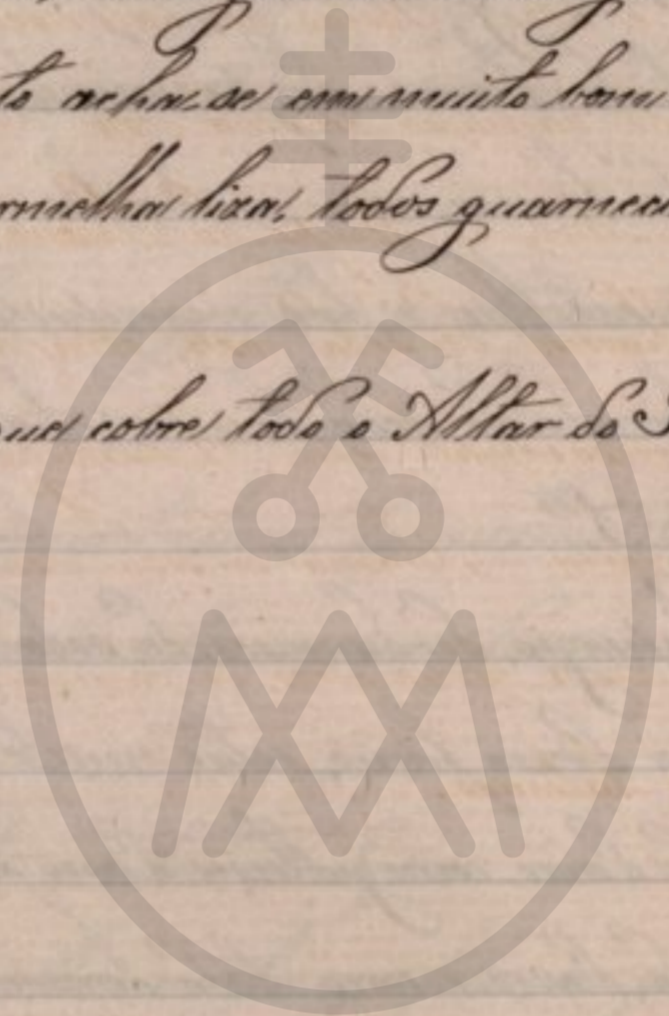 to acha-se em muito bom
rmelha liza, todos guarnec
ue cobre todo o Altar do S